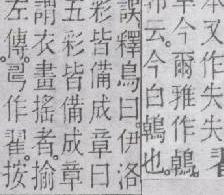 本又作失夫
今爾雅作鶾
云今白鶾也。
誤釋鳥曰伊洛
彩皆備成章曰
五彩皆備成章
謂衣畫搖者揄
左傳。作翟。按